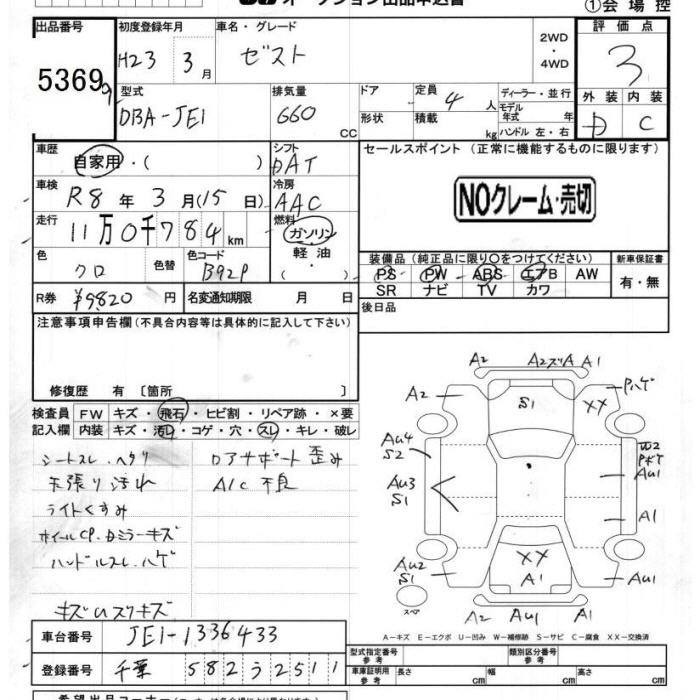 オークション出品申込書
①会場控
出品番号 5369 9
初度登録年月 H23 3月
車名・グレード ゼスト
2WD・4WD
評価点 3
外装 D 内装 C
型式 DBA-JE1
排気量 660 CC
ドア 形状
定員 4人
積載 kg
ディーラー・並行
モデル年式 年
ハンドル 左・右
車歴 自家用・( )
シフト DAT
車検 R8年3月(15日)
冷房 AAC
走行 11万0千784km
燃料 ガソリン・軽油・( )
色 クロ
色替
色コード B92P
R券 ¥9820円
名変通知期限 月 日
セールスポイント (正常に機能するものに限ります)
NOクレーム・売切
装備品 (純正品に限り○をつけてください)
PS PW ABS エアB AW
SR ナビ TV カワ
新車保証書 有・無
後日品
注意事項申告欄 (不具合内容等は具体的に記入して下さい)
修復歴 有 [箇所 ]
検査員記入欄
FW キズ・飛石・ヒビ割・リペア跡・×要
内装 キズ・汚レ・コゲ・穴・スレ・キレ・破レ
シートスレ、ヘタリ
天張り汚れ
ライトくすみ
ホイールCP、ミラーキズ
ハンドルスレ、ハゲ
キズ スリキズ
ロアサポート歪み
A/C 不良
A2 A2 A A1
A2 S1 XX Pハゲ
Au4 S2
W2
Au3 S1
Au1
A1
Au2 S1 XX A1 Au1
スペア
A2 Au1 A1
A-キズ E-エクボ U-凹み W-補修跡 S-サビ C-腐食 XX-交換済
車台番号 JE1-1336433
登録番号 千葉 582 う 2511
型式指定番号 参考
類別区分番号 参考
車庫証明用 参考 長さ cm 幅 cm 高さ cm
希望出品コーナー